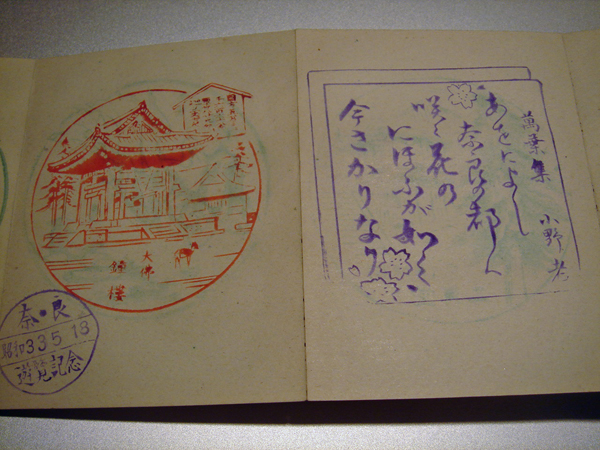 萬葉集
小野老
あをによし
奈良の都は
咲く花の
にほふが如く
今さかりなり
大佛
鐘楼
奈・良
昭和33 5 18
遊覧記念